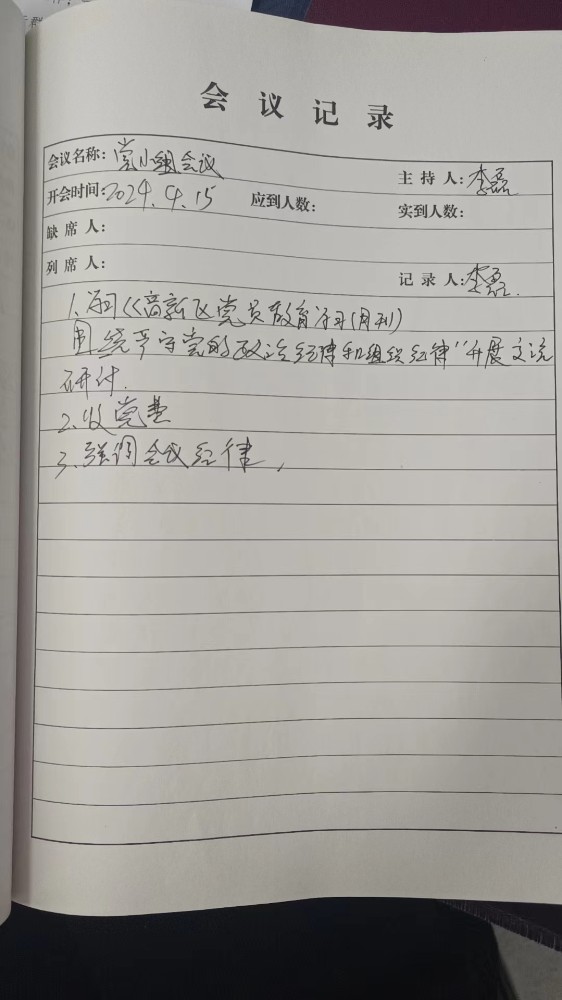 会议记录
会议名称：党小组会议
主持人：李磊
开会时间：2024.4.15 应到人数： 实到人数：
缺席人：
列席人：
记录人：李磊.
1.学习《高新区党员教育学习(周刊)
围绕严守党的政治纪律和组织纪律"开展交流
研讨.
2.收党费
3.强调会议纪律,